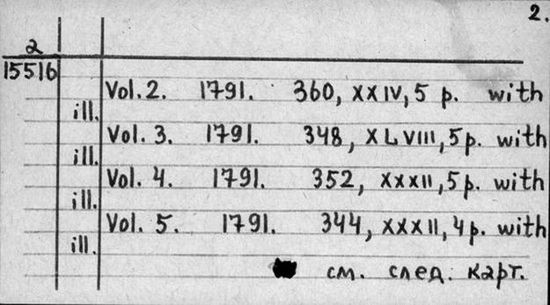 2.
2
15516
Vol. 2. 1791. 360, XXIV, 5 p. with
ill.
Vol. 3. 1791. 348, XLVIII, 5 p. with
ill.
Vol. 4. 1791. 352, XXXII, 5 p. with
ill.
Vol. 5. 1791. 344, XXXII, 4 p. with
ill.
см. след. карт.